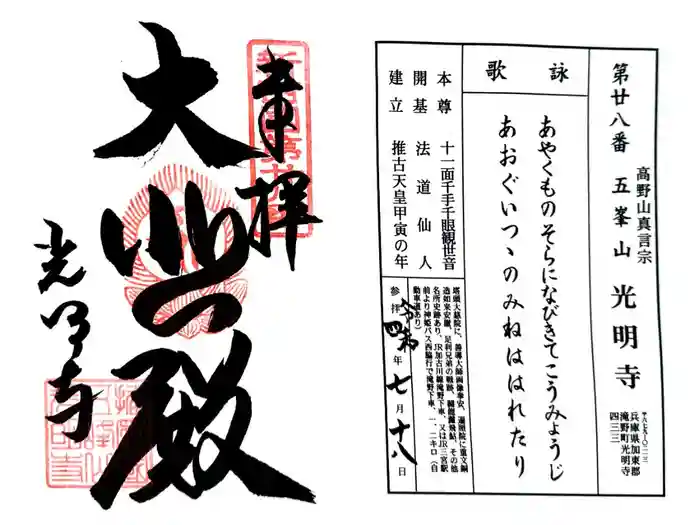 奉拝
大悲殿
光明寺
第廿八番 五峯山 光明寺
高野山真言宗
兵庫県加東郡
滝野町光明寺
四三三
詠歌
あやくものそらになびきてこうみょうじ
あおぐいつゝのみねははれたり
本尊 十一面千手千眼観世音
開基 法道仙人
建立 推古天皇甲寅の年
塔頭大慈院に、善導大師画像奉安、遍照院に重文銅
造如来安置、足利兄弟の戦跡、闘龍灘飛鮎、その他
名所史跡あり、JR加古川線滝野下車、又はJR三宮駅
前より神姫バス西脇行で滝野下車、一、二キロ（自
動車道あり）
参拝 令和四年七月十八日